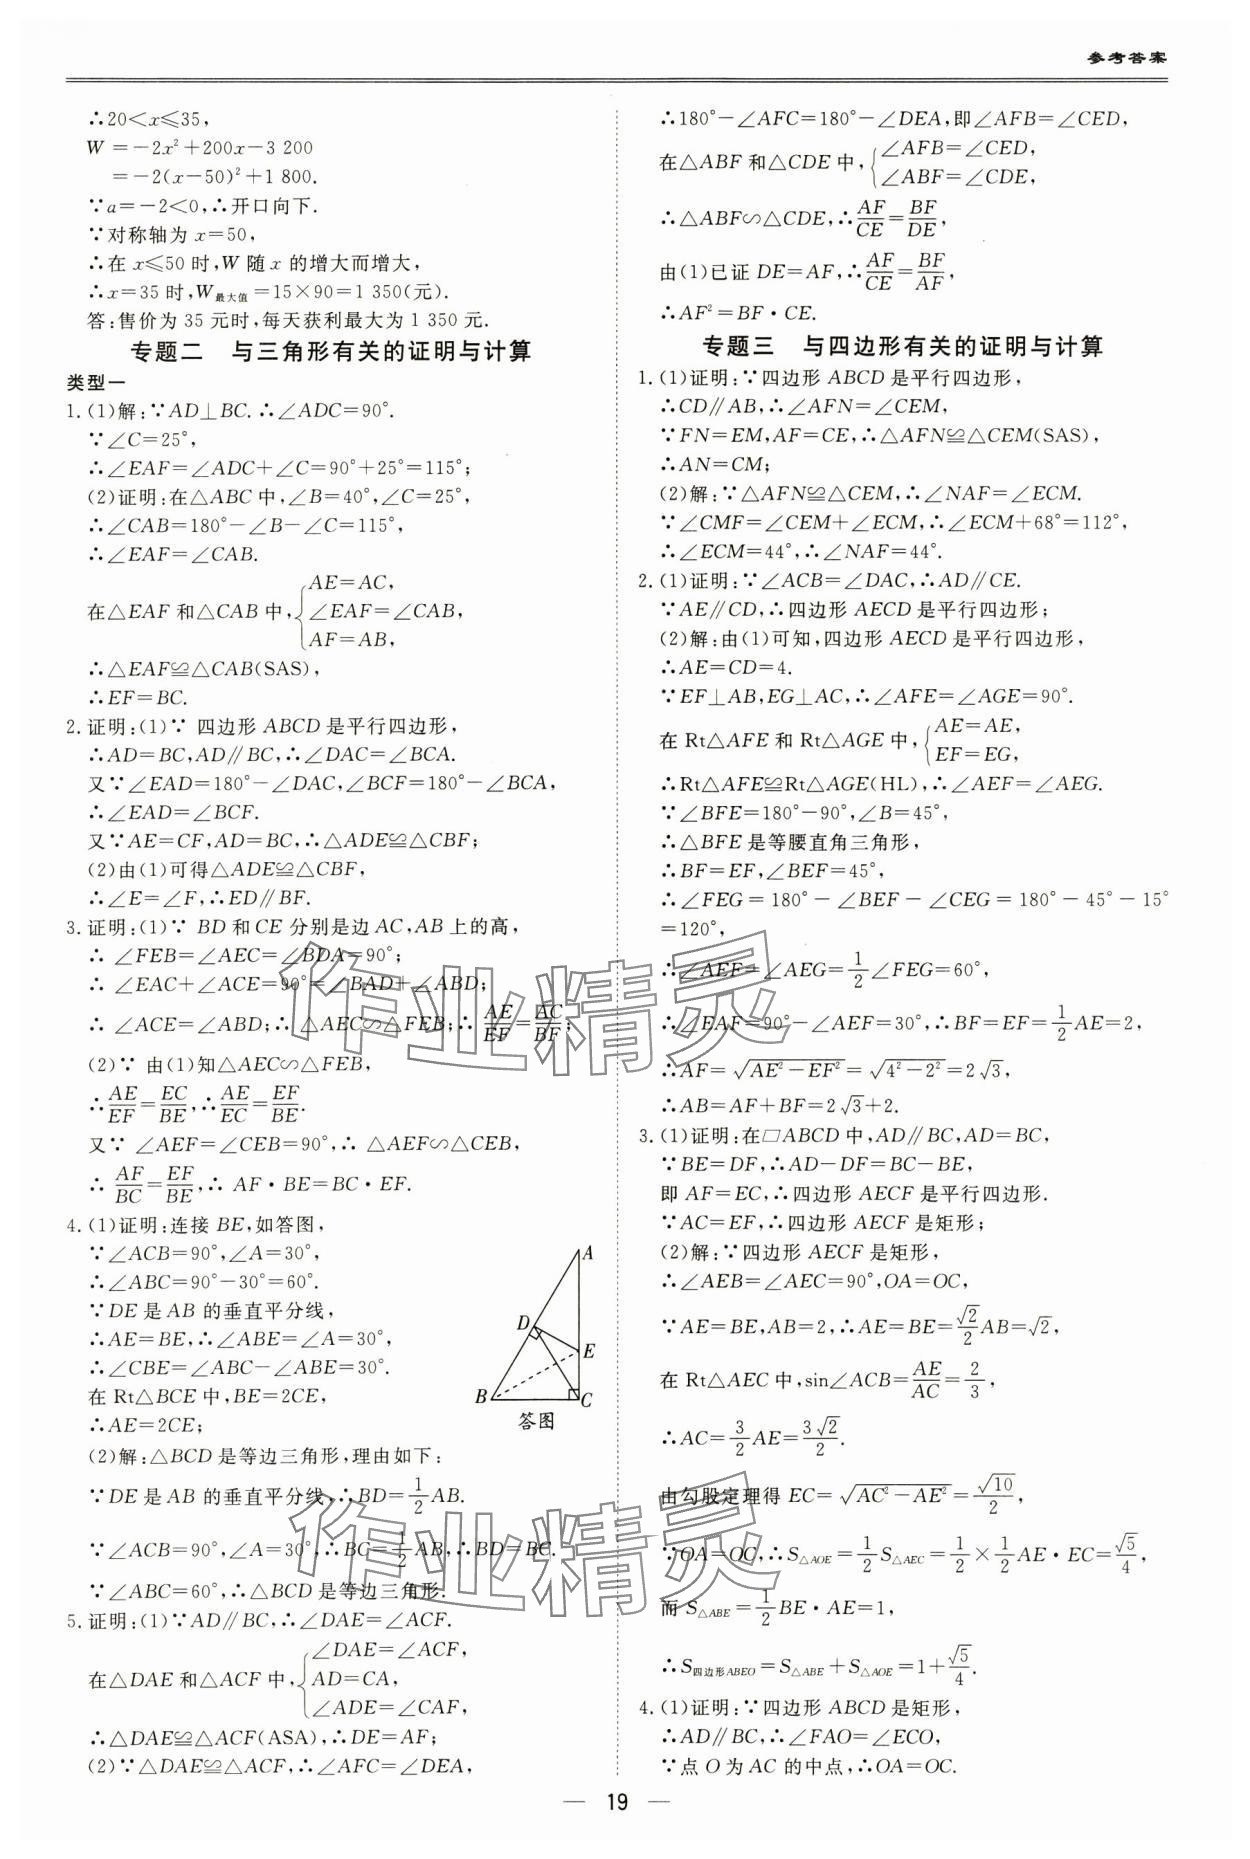 参考答案
∴20<x≤35,
W=-2x²+200x-3 200
=-2(x-50)²+1 800.
∵a=-2<0,∴开口向下.
∵对称轴为 x=50,
∴在 x≤50 时,W 随 x 的增大而增大,
∴x=35 时,W最大值=15×90=1 350(元).
答:售价为 35 元时,每天获利最大为 1 350 元.
专题二 与三角形有关的证明与计算
类型一
1.(1)解:∵AD⊥BC.∴∠ADC=90°.
∵∠C=25°,
∴∠EAF=∠ADC+∠C=90°+25°=115°;
(2)证明:在△ABC 中,∠B=40°,∠C=25°,
∴∠CAB=180°-∠B-∠C=115°,
∴∠EAF=∠CAB.
在△EAF 和△CAB 中,{AE=AC,
∠EAF=∠CAB,
AF=AB,
∴△EAF≌△CAB(SAS),
∴EF=BC.
2.证明:(1)∵ 四边形 ABCD 是平行四边形,
∴AD=BC,AD∥BC,∴∠DAC=∠BCA.
又∵∠EAD=180°-∠DAC,∠BCF=180°-∠BCA,
∴∠EAD=∠BCF.
又∵AE=CF,AD=BC,∴△ADE≌△CBF;
(2)由(1)可得△ADE≌△CBF,
∴∠E=∠F,∴ED∥BF.
3.证明:(1)∵ BD 和 CE 分别是边 AC,AB 上的高,
∴ ∠FEB=∠AEC=∠BDA=90°;
∴ ∠EAC+∠ACE=90°=∠BAD+∠ABD;
∴ ∠ACE=∠ABD;∴ △AEC∽△FEB;∴ AE/EF=AC/BF;
(2)∵ 由(1)知△AEC∽△FEB,
∴AE/EF=EC/BE,∴AE/EC=EF/BE.
又∵ ∠AEF=∠CEB=90°,∴ △AEF∽△CEB,
∴ AF/BC=EF/BE,∴ AF·BE=BC·EF.
4.(1)证明:连接 BE,如答图,
∵∠ACB=90°,∠A=30°,
∴∠ABC=90°-30°=60°.
∵DE 是 AB 的垂直平分线,
∴AE=BE,∴∠ABE=∠A=30°,
∴∠CBE=∠ABC-∠ABE=30°.
在 Rt△BCE 中,BE=2CE,
∴AE=2CE;
A
D
E
B
C
答图
(2)解:△BCD 是等边三角形,理由如下:
∵DE 是 AB 的垂直平分线,∴BD=1/2AB.
∵∠ACB=90°,∠A=30°,∴BC=1/2AB,∴BD=BC.
∵∠ABC=60°,∴△BCD 是等边三角形.
5.证明:(1)∵AD∥BC,∴∠DAE=∠ACF.
在△DAE 和△ACF 中,{∠DAE=∠ACF,
AD=CA,
∠ADE=∠CAF,
∴△DAE≌△ACF(ASA),∴DE=AF;
(2)∵△DAE≌△ACF,∴∠AFC=∠DEA,
∴180°-∠AFC=180°-∠DEA,即∠AFB=∠CED,
在△ABF 和△CDE 中,{∠AFB=∠CED,
∠ABF=∠CDE,
∴△ABF∽△CDE,∴AF/CE=BF/DE,
由(1)已证 DE=AF,∴AF/CE=BF/AF,
∴AF²=BF·CE.
专题三 与四边形有关的证明与计算
1.(1)证明:∵四边形 ABCD 是平行四边形,
∴CD∥AB,∴∠AFN=∠CEM,
∵FN=EM,AF=CE,∴△AFN≌△CEM(SAS),
∴AN=CM;
(2)解:∵△AFN≌△CEM,∴∠NAF=∠ECM.
∵∠CMF=∠CEM+∠ECM,∴∠ECM+68°=112°,
∴∠ECM=44°,∴∠NAF=44°.
2.(1)证明:∵∠ACB=∠DAC,∴AD∥CE.
∵AE∥CD,∴四边形 AECD 是平行四边形;
(2)解:由(1)可知,四边形 AECD 是平行四边形,
∴AE=CD=4.
∵EF⊥AB,EG⊥AC,∴∠AFE=∠AGE=90°.
在 Rt△AFE 和 Rt△AGE 中,{AE=AE,
EF=EG,
∴Rt△AFE≌Rt△AGE(HL),∴∠AEF=∠AEG.
∵∠BFE=180°-90°,∠B=45°,
∴△BFE 是等腰直角三角形,
∴BF=EF,∠BEF=45°,
∴∠FEG=180°-∠BEF-∠CEG=180°-45°-15°
=120°,
∴∠AEF=∠AEG=1/2∠FEG=60°,
∴∠EAF=90°-∠AEF=30°,∴BF=EF=1/2AE=2,
∴AF=√(AE²-EF²)=√(4²-2²)=2√3,
∴AB=AF+BF=2√3+2.
3.(1)证明:在▱ABCD 中,AD∥BC,AD=BC,
∵BE=DF,∴AD-DF=BC-BE,
即 AF=EC,∴四边形 AECF 是平行四边形.
∵AC=EF,∴四边形 AECF 是矩形;
(2)解:∵四边形 AECF 是矩形,
∴∠AEB=∠AEC=90°,OA=OC,
∵AE=BE,AB=2,∴AE=BE=√2/2AB=√2,
在 Rt△AEC 中,sin∠ACB=AE/AC=2/3,
∴AC=3/2AE=3√2/2.
由勾股定理得 EC=√(AC²-AE²)=√10/2,
∵OA=OC,∴S△AOE=1/2S△AEC=1/2×1/2AE·EC=√5/4,
而 S△ABE=1/2BE·AE=1,
∴S四边形ABEO=S△ABE+S△AOE=1+√5/4.
4.(1)证明:∵四边形 ABCD 是矩形,
∴AD∥BC,∴∠FAO=∠ECO,
∵点 O 为 AC 的中点,∴OA=OC.
— 19 —
作业精灵
作业精灵